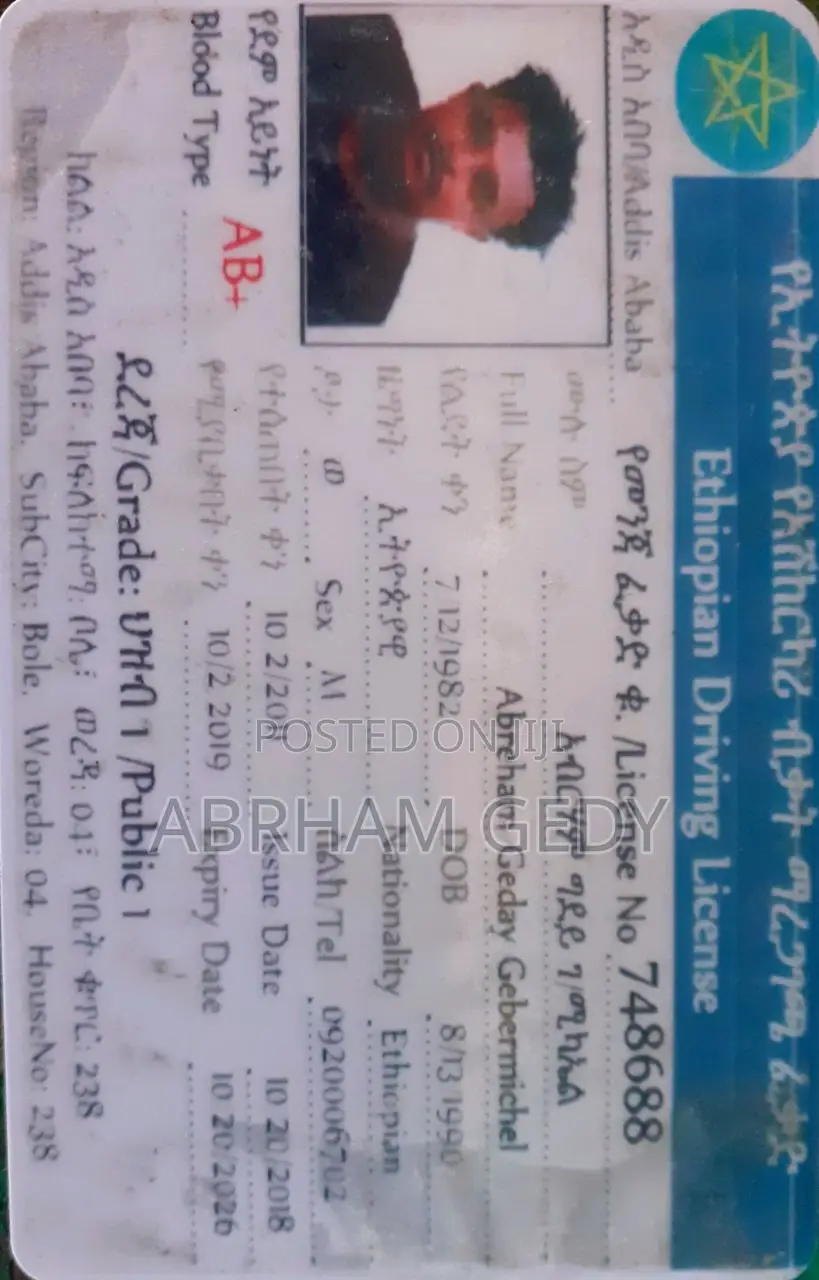 የኢትዮጵያ የአሽከርካሪ ብቃት ማረጋገጫ ፈቃድ
Ethiopian Driving License
አዲስ አበባ/Addis Ababa
የመንጃ ፈቃድ ቁ. /License No 748688
ሙሉ ስም አብርሃም ግደይ ገ/ሚካኤል
Full Name Abreham Geday Gebermichel
የልደት ቀን 7/12/1982 DOB 8/13/1990
ዜግነት ኢትዮጵያዊ Nationality Ethiopian
ፆታ ወ Sex M ስልክ/Tel 0920006702
የተሰጠበት ቀን 10/2/2011 Issue Date 10/20/2018
የሚያበቃበት ቀን 10/2/2019 Expiry Date 10/20/2026
የደም አይነት
Blood Type AB+
ደረጃ/Grade: ህዝብ 1 /Public 1
ክልል: አዲስ አበባ፤ ክፍለከተማ: ቦሌ፤ ወረዳ: 04፤ የቤት ቁጥር: 238
Region: Addis Ababa, SubCity: Bole, Woreda: 04, HouseNo: 238
POSTED ON JIJI
ABRHAM GEDY